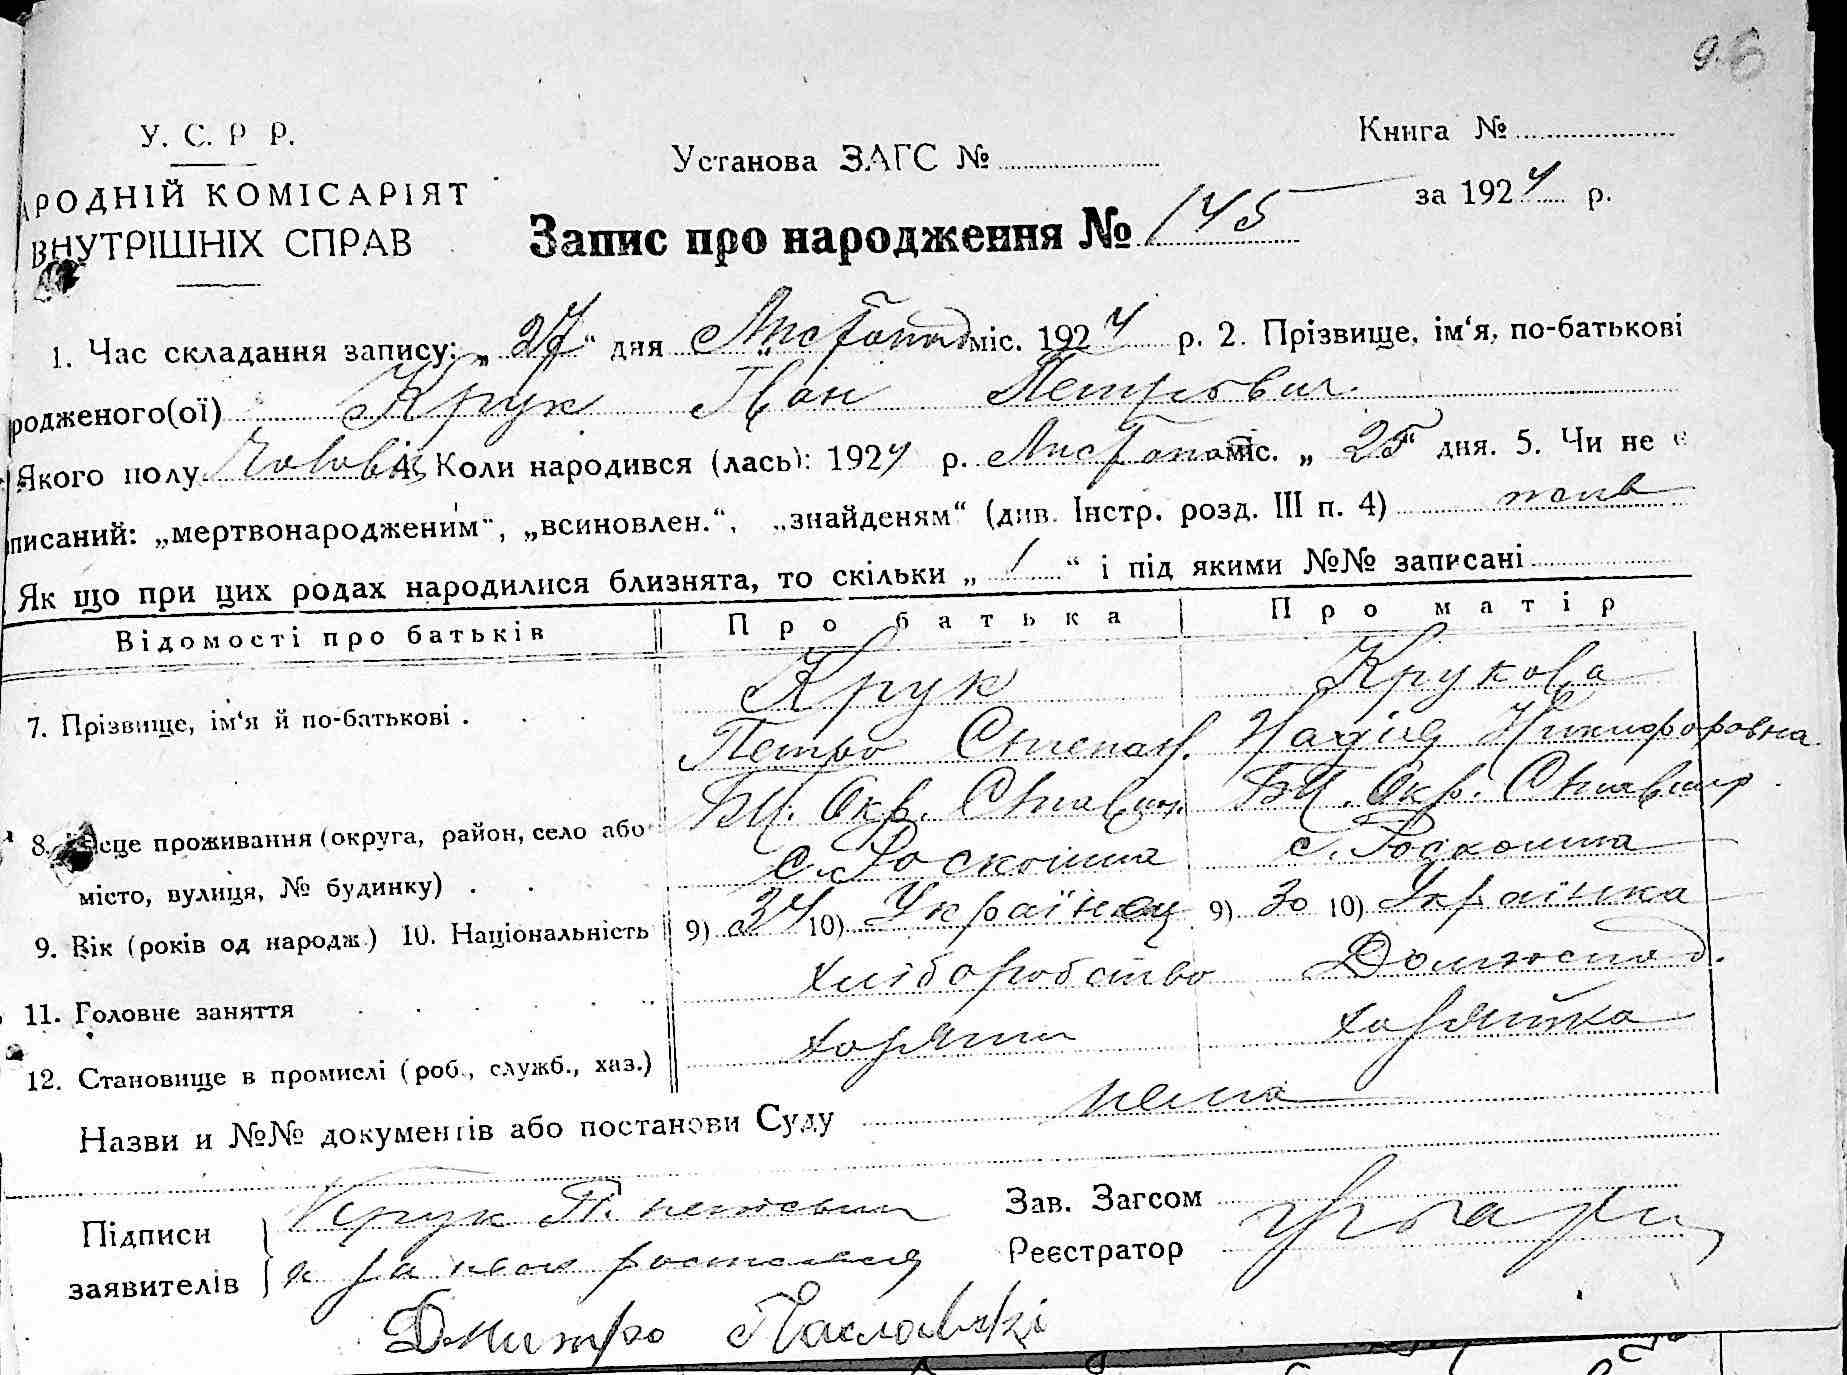 96
У. С. Р Р.
РОДНІЙ КОМІСАРІЯТ
ВНУТРІШНІХ СПРАВ
Установа ЗАГС №
Книга №
за 1924 р.
Запис про народження № 145
1. Час складання запису: „27“ дня Листопад міс. 1924 р. 2. Прізвище, ім‘я, по-батькові
родженого(ої) Крук Іван Петрович.
Якого полу Чоловік 4. Коли народився (лась): 1924 р. Листопад міс. „25“ дня. 5. Чи не є
писаний: „мертвонародженим“, „всиновлен.“, „знайденям“ (див. Інстр. розд. III п. 4)
Як що при цих родах народилися близнята, то скільки „1“ і під якими №№ записані
Відомості про батьків Про батька Про матір
7. Прізвище, ім‘я й по-батькові . Крук Крукова
Петро Степан. Надія Никифоровна
БЦ. Окр. Ставищ. БЦ. Окр. Ставищ.
8. сце проживання (округа, район, село або с. Роскошна с. Роскошна
місто, вулиця, № будинку) .
9. Вік (років од народж.) 10. Національність 9) 34 10) Українец 9) 30 10) Українка
11. Головне заняття хліборобство Домгоспод.
12. Становище в промислі (роб., служб., хаз.) хозяин хозяйка
Назви и №№ документів або постанови Суду нема
Підписи заявителів Крук П.
Зав. Загсом
Реєстратор
Дмитро Паславскі